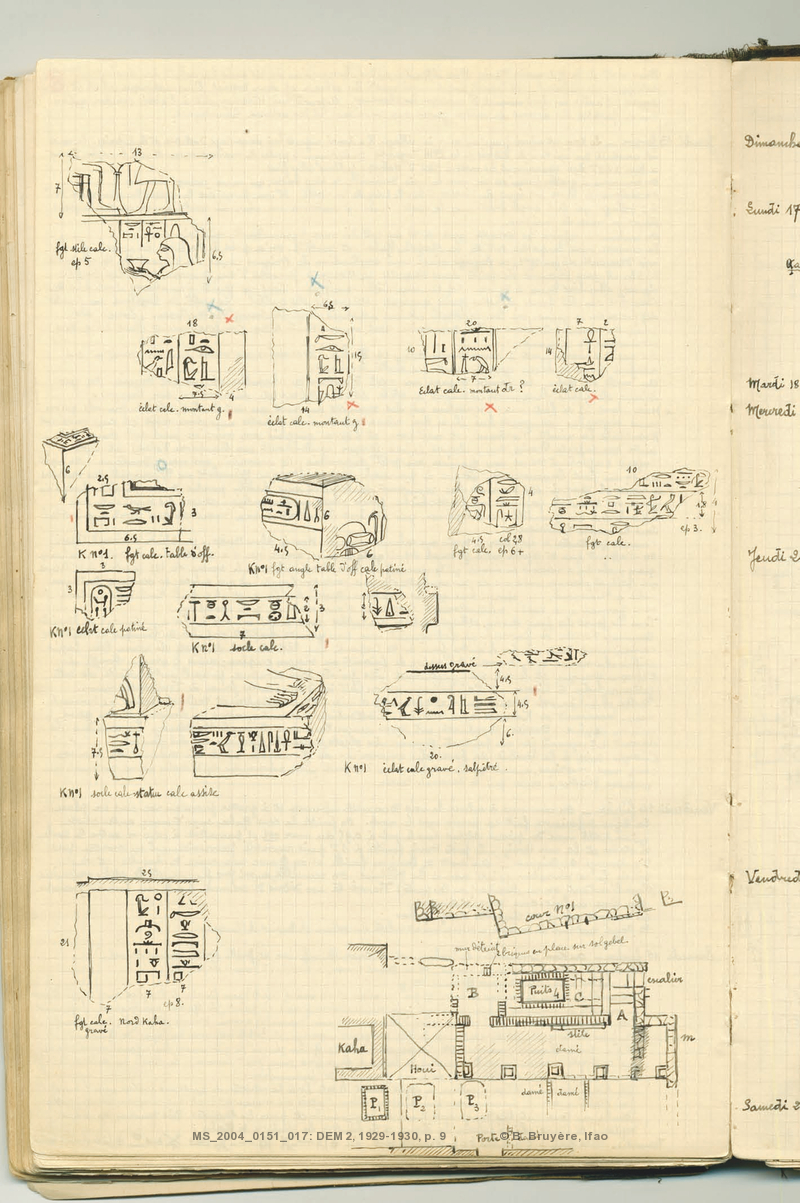 13
7
fgt stèle calc.
ep 5
6.5
18
7.5
4
éclat calc. montant g.
6.5
4
15
14
éclat calc. montant g.
20
10
7
Eclat calc. montant dr ?
7 2
14
éclat calc.
6
2.5
3
6.5
K n°1. fgt calc. table d'off.
6
4.5
6
K n°1 fgt angle table d'off calc patiné
4
4.5
fgt calc. ep 6+
10
ep 3.
fgt calc.
3
3
K n°1 éclat calc patiné
2
3
7
K n°1 socle calc.
7.5
K n°1 socle calc statue calc assise
dessus gravé
4.5
4.5
6.
20.
K n°1 éclat calc gravé, salpêtré.
25
21
7
7
7
ep 8.
fgt calc. Nord Kaha.
gravé
cour N°1
mur détruit 2 briques en place sur sol gebel.
B
Puits 4
C
escalier
A
stèle
damé
m
Kaha
Houi
P1
P2
P3
damé
damé
Porte
Dimanche
Lundi 17
Mardi 18
Mercredi
Jeudi 2
Vendred
Samedi 2
MS_2004_0151_017: DEM 2, 1929-1930, p. 9
© B. Bruyère, Ifao